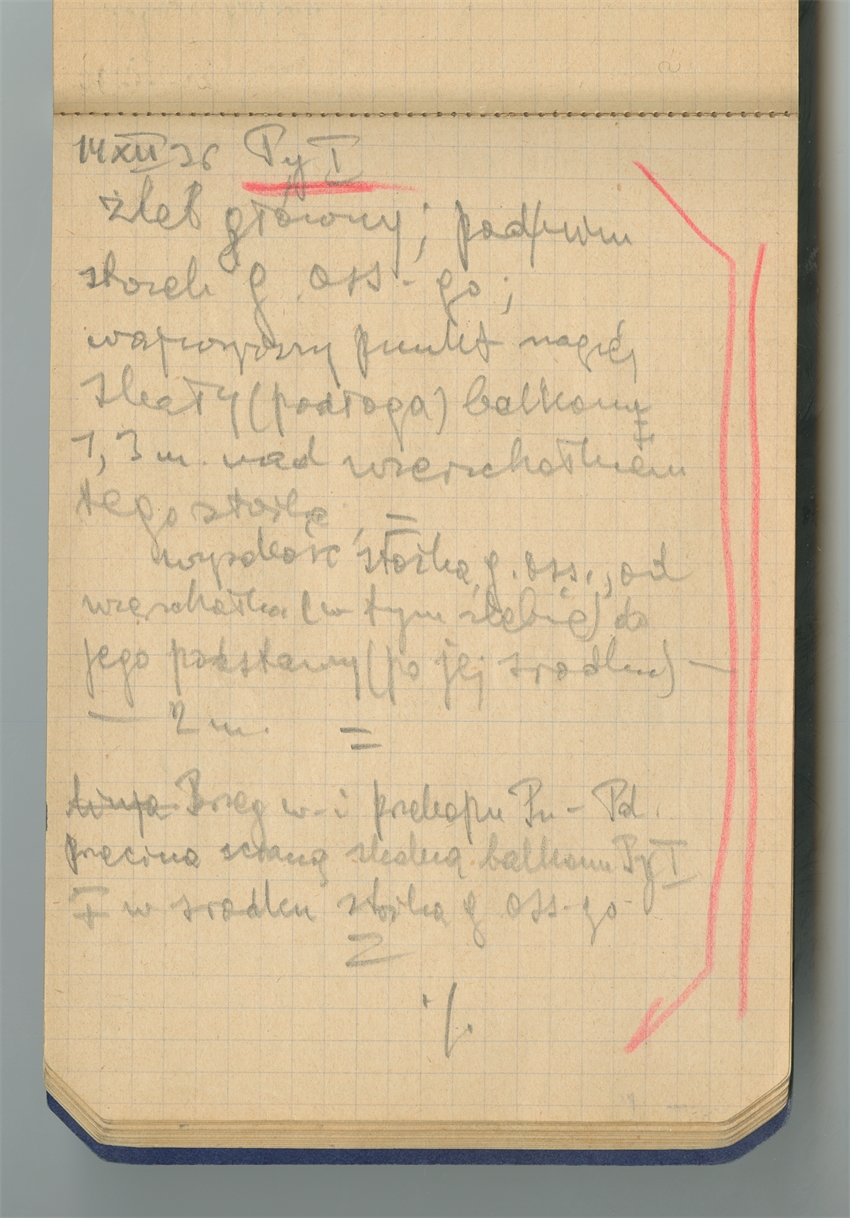 14 XII 36 Py I
żleb główny; pod
stożek g. oss-go;
najwyższy punkt nagiej
skały (podłoga) balkonu
I
1,3 m. nad wierzchołkiem
tego stożka, =
wysokość stożka g. oss., od
wierzchołka (w tym żlebie) do
jego podstawy (po jej środku) —
— 2 m. =
Brzeg w-i przekopu Pn - Pd.
przecina ścianę skalną balkonu Py I
I w środku stożka g oss-go
=
·/.